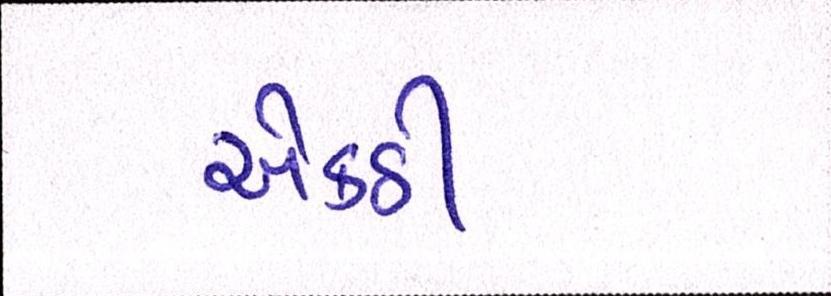 એકઠી